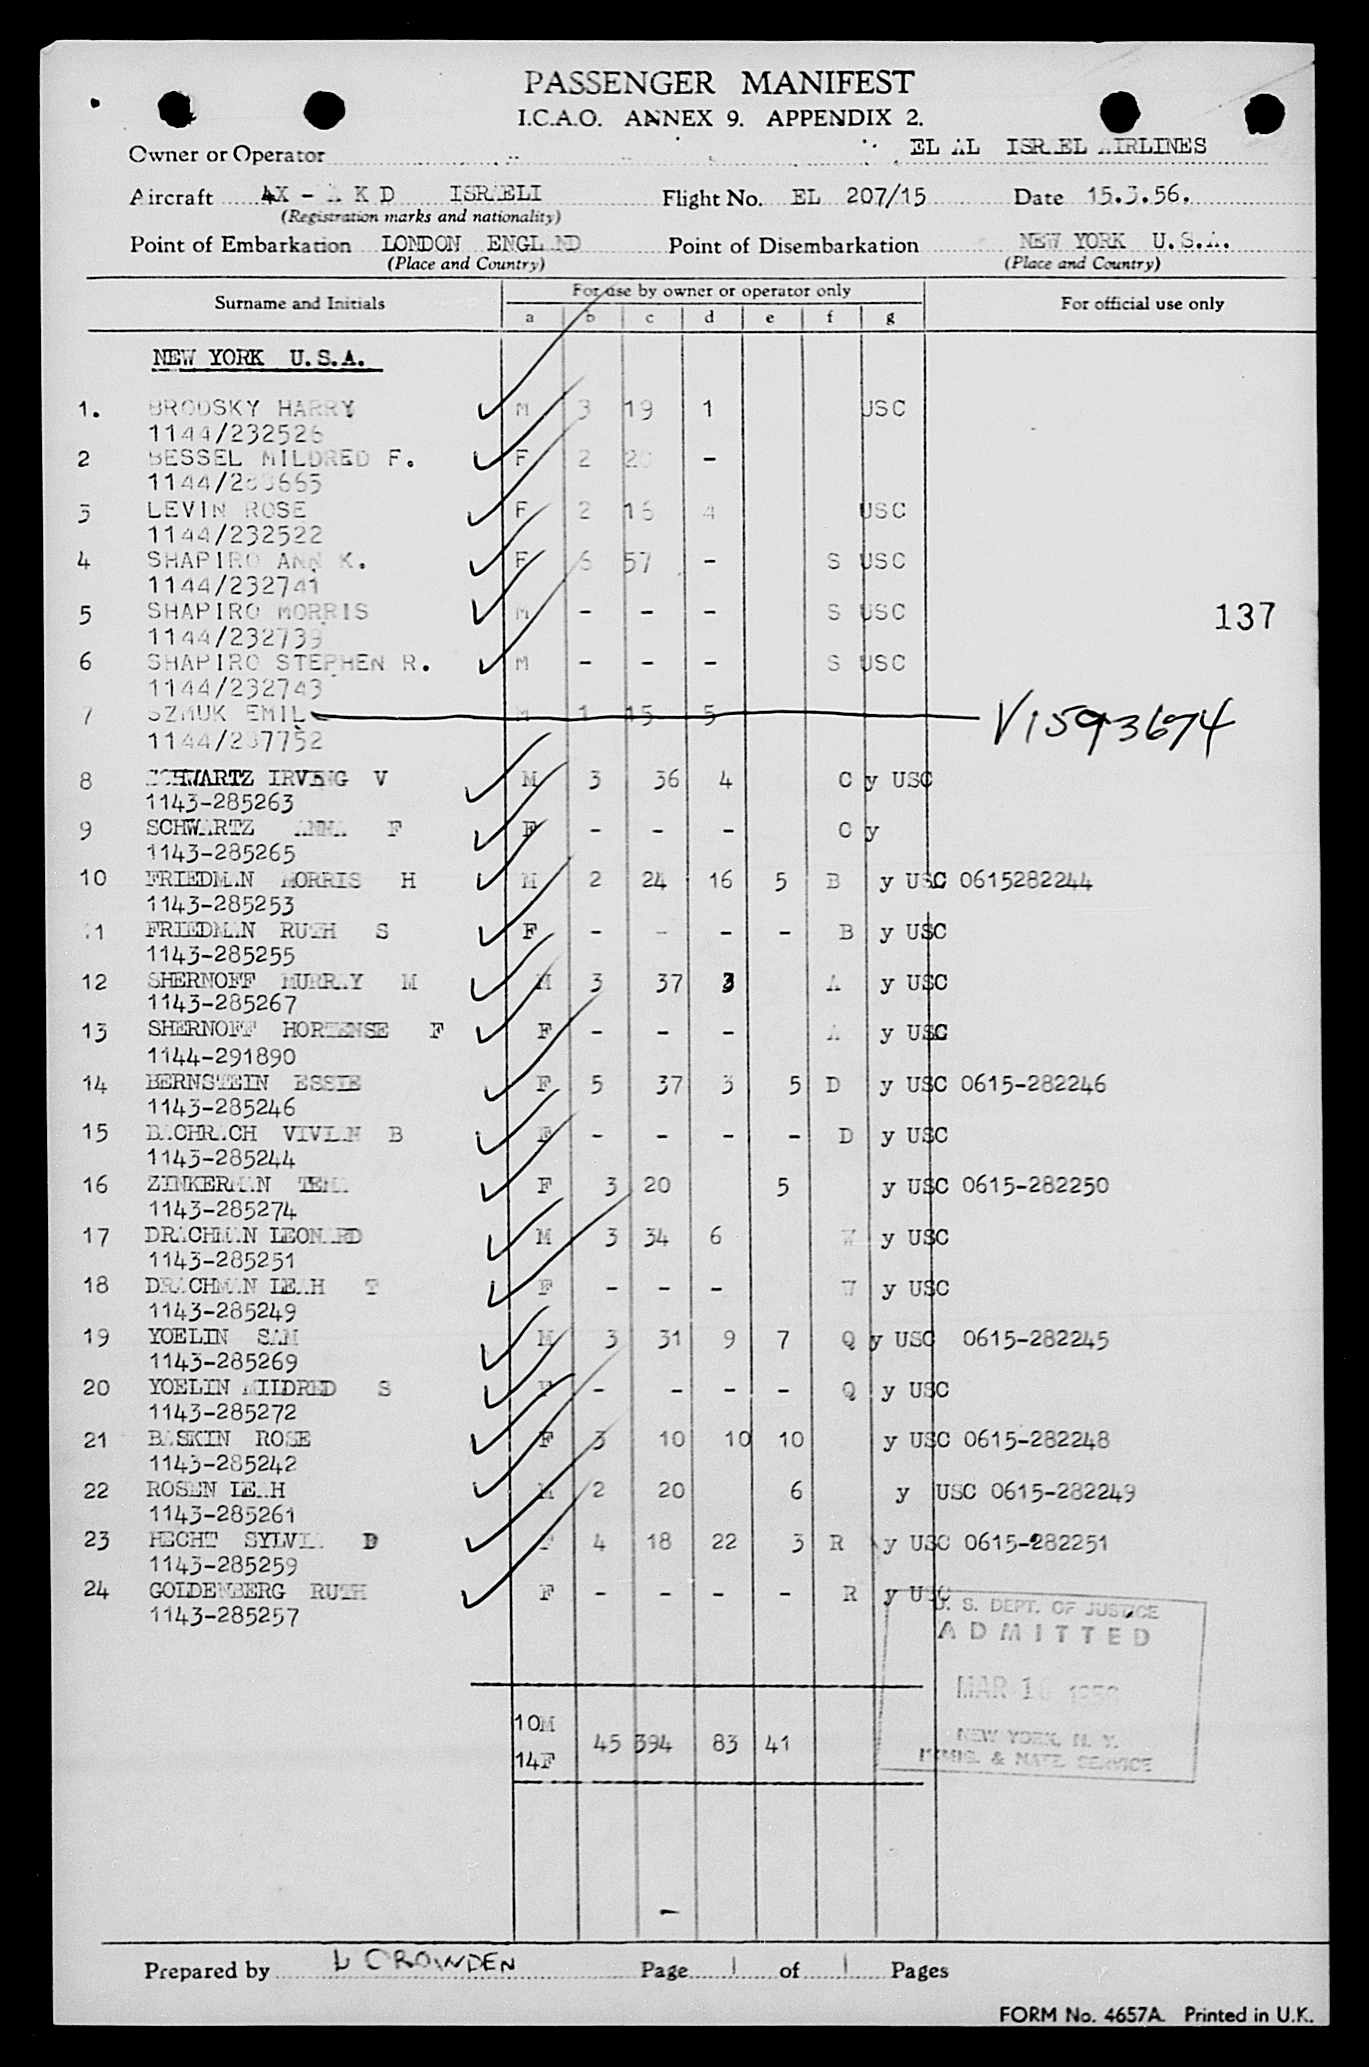 PASSENGER MANIFEST
I.C.A.O. ANNEX 9. APPENDIX 2.
Owner or Operator EL AL ISRAEL AIRLINES
Aircraft 4X - A K D ISRAELI Flight No. EL 207/15 Date 15.3.56.
(Registration marks and nationality)
Point of Embarkation LONDON ENGLAND Point of Disembarkation NEW YORK U.S.A.
(Place and Country) (Place and Country)
Surname and Initials For use by owner or operator only For official use only
a b c d e f g
NEW YORK U.S.A.
1. BRODSKY HARRY M 3 19 1 USC
1144/232526
2 BESSEL MILDRED F. F 2 20 -
3 LEVIN ROSE F 2 16 4 USC
1144/232522
4 SHAPIRO ANN K. F 6 57 - S USC
1144/232741
5 SHAPIRO MORRIS M - - - S USC
137
1144/232739
6 SHAPIRO STEPHEN R. M - - - S USC
1144/232743
7 SZMUK EMIL M 1 15 5 V1593674
1144/237752
8 SCHWARTZ IRVING V M 3 36 4 C y USC
1143-285263
9 SCHWARTZ ANNA F F - - - C y
1143-285265
10 FRIEDMAN MORRIS H M 2 24 16 5 B y USC 0615282244
1143-285253
11 FRIEDMAN RUTH S F - - - - B y USC
1143-285255
12 SHERNOFF MURRAY M M 3 37 3 A y USC
1143-285267
13 SHERNOFF HORTENSE F F - - - A y USC
1144-291890
14 BERNSTEIN ESSIE F 5 37 3 5 D y USC 0615-282246
1143-285246
15 BACHRACH VIVIAN B F - - - - D y USC
1143-285244
16 ZINKERMAN TEMA F 3 20 5 y USC 0615-282250
1143-285274
17 DRACHMAN LEONARD M 3 34 6 W y USC
1143-285251
18 DRACHMAN LEAH T F - - - W y USC
1143-285249
19 YOELIN SAM M 3 31 9 7 Q y USC 0615-282245
1143-285269
20 YOELIN MILDRED S F - - - - Q y USC
1143-285272
21 BASKIN ROSE F 3 10 10 10 y USC 0615-282248
1143-285242
22 ROSEN LEAH M 2 20 6 y USC 0615-282249
1143-285261
23 HECHT SYLVIA D F 4 18 22 3 R y USC 0615-282251
1143-285259
24 GOLDENBERG RUTH F - - - - R y USC
1143-285257
U. S. DEPT. OF JUSTICE
ADMITTED
MAR 16 1956
NEW YORK, N. Y.
IMMIG. & NATZ. SERVICE
10M
14F 45 394 83 41
Prepared by L CROWDEN Page 1 of 1 Pages
FORM No. 4657A. Printed in U.K.